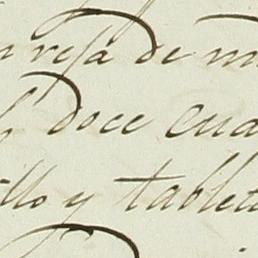 reja de
doce cua
illo y tablet